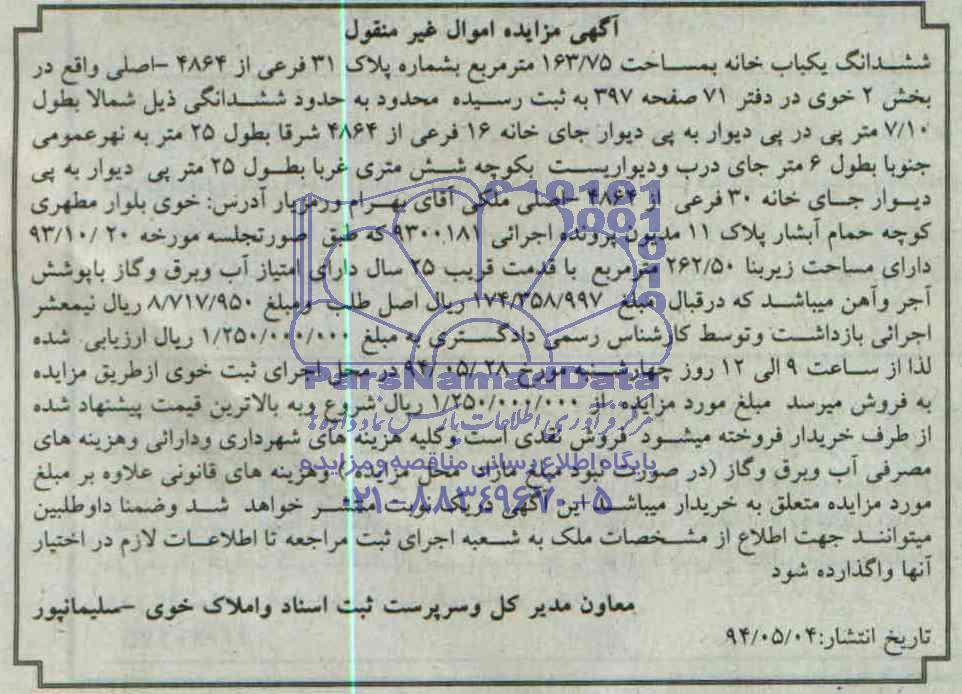 آگهی مزایده اموال غیر منقول
ششدانگ یکباب خانه بمساحت ۱۶۳/۷۵ مترمربع بشماره پلاک ۳۱ فرعی از ۴۸۶۴ -اصلی واقع در
بخش ۲ خوی در دفتر ۷۱ صفحه ۳۹۷ به ثبت رسیده محدود به حدود ششدانگی ذیل شمالا بطول
۷/۱۰ متر پی در پی دیوار به پی دیوار جای خانه ۱۶ فرعی از ۴۸۶۴ شرقا بطول ۲۵ متر به نهرعمومی
جنوبا بطول ۶ متر جای درب ودیواریست بکوچه شش متری غربا بطول ۲۵ متر پی دیوار به پی
دیوار جای خانه ۳۰ فرعی از ۴۸۶۴ -اصلی ملکی آقای بهرام ورمزیار آدرس: خوی بلوار مطهری
کوچه حمام آبشار پلاک ۱۱ مدیون پرونده اجرائی ۹۳۰۰۱۸۱ که طبق صورتجلسه مورخه ۲۰ /۹۳/۱۰
دارای مساحت زیربنا ۲۶۲/۵۰ مترمربع با قدمت قریب ۲۵ سال دارای امتیاز آب وبرق وگاز باپوشش
آجر وآهن میباشد که درقبال مبلغ ۱۷۴/۳۵۸/۹۹۷ ریال اصل طلب ومبلغ ۸/۷۱۷/۹۵۰ ریال نیمعشر
اجرائی بازداشت وتوسط کارشناس رسمی دادگستری به مبلغ ۱/۲۵۰/۰۰۰/۰۰۰ ریال ارزیابی شده
لذا از ساعت ۹ الی ۱۲ روز چهارشنبه مورخ ۲۸ /۹۴/۰۵ در محل اجرای ثبت خوی ازطریق مزایده
به فروش میرسد مبلغ مورد مزایده از ۱/۲۵۰/۰۰۰/۰۰۰ ریال شروع وبه بالاترین قیمت پیشنهاد شده
از طرف خریدار فروخته میشود فروش نقدی است وکلیه هزینه های شهرداری ودارائی وهزینه های
مصرفی آب وبرق وگاز (در صورت نبود مبلغ مازاد محل مزایده) وهزینه های قانونی علاوه بر مبلغ
مورد مزایده متعلق به خریدار میباشد این آگهی دریک نوبت منتشر خواهد شد وضمنا داوطلبین
میتوانند جهت اطلاع از مشخصات ملک به شعبه اجرای ثبت مراجعه تا اطلاعات لازم در اختیار
آنها واگذارده شود
معاون مدیر کل وسرپرست ثبت اسناد واملاک خوی -سلیمانپور
تاریخ انتشار:۹۴/۰۵/۰۴
ParsNamadData
مرکز فرآوری اطلاعات پارس نماد داده ها
پایگاه اطلاع رسانی مناقصه و مزایده
۰۲۱-۸۸۳۴۹۶۷۰-۵